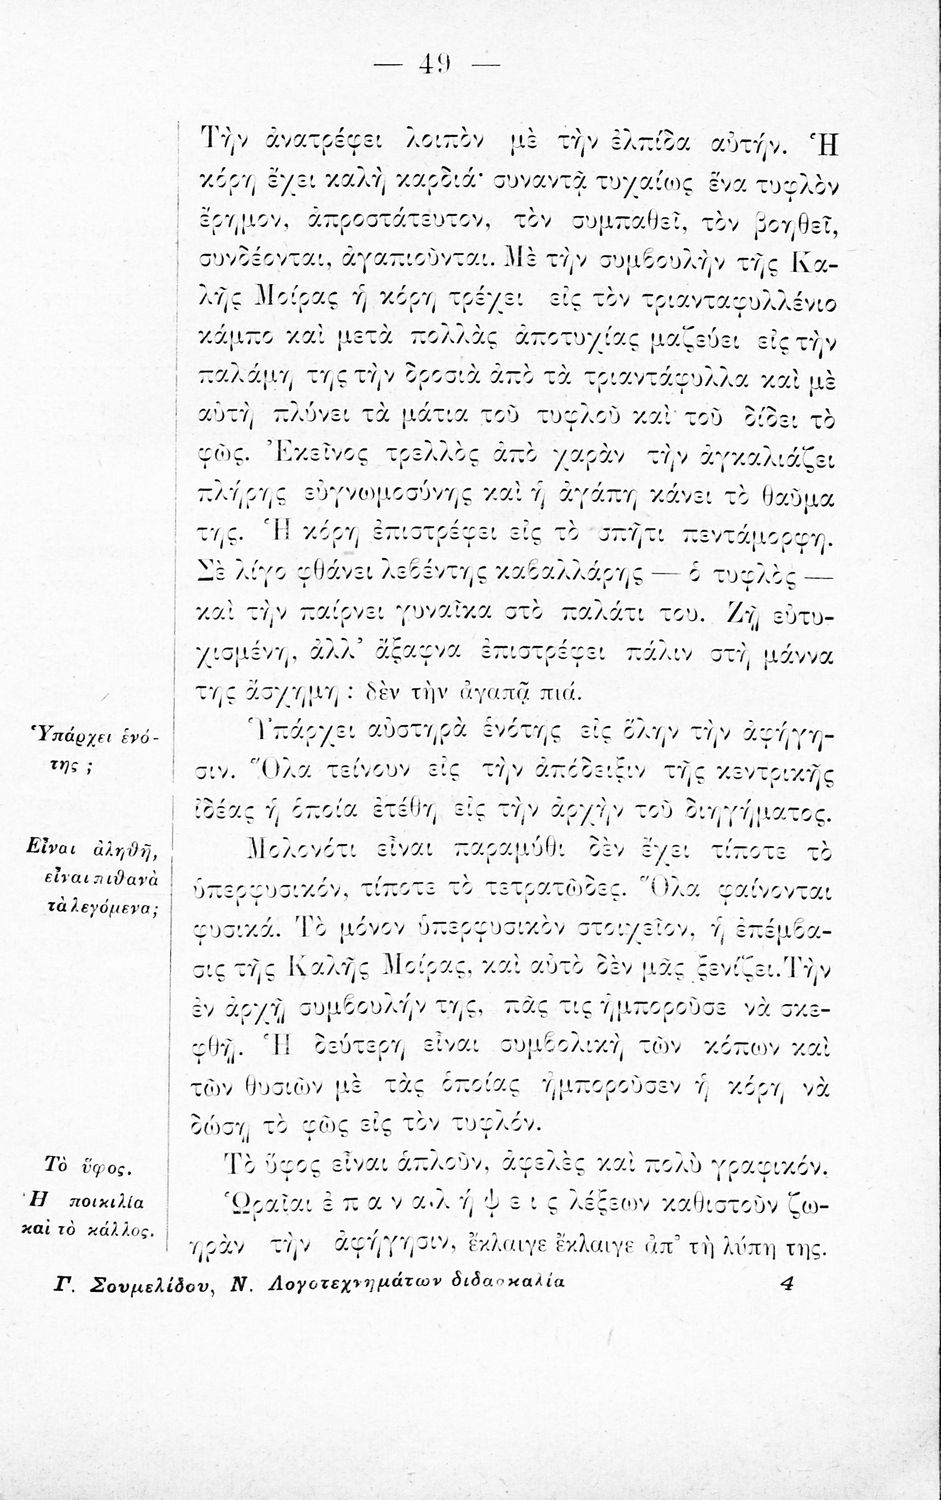 — 49 —
Τὴν ἀνατρέφει λοιπὸν μὲ τὴν ἐλπίδα αὐτήν. Ἡ
κόρη ἔχει καλὴ καρδιά· συναντᾷ τυχαίως ἕνα τυφλὸν
ἔρημον, ἀπροστάτευτον, τὸν συμπαθεῖ, τὸν βοηθεῖ,
συνδέονται, ἀγαπιοῦνται. Μὲ τὴν συμβουλὴν τῆς Κα-
λῆς Μοίρας ἡ κόρη τρέχει εἰς τὸν τριανταφυλλένιο
κάμπο καὶ μετὰ πολλὰς ἀποτυχίας μαζεύει εἰς τὴν
παλάμη της τὴν δροσιὰ ἀπὸ τὰ τριαντάφυλλα καὶ μὲ
αὐτὴ πλύνει τὰ μάτια τοῦ τυφλοῦ καὶ τοῦ δίδει τὸ
φῶς. Ἐκεῖνος τρελλὸς ἀπὸ χαρὰν τὴν ἀγκαλιάζει
πλήρης εὐγνωμοσύνης καὶ ἡ ἀγάπη κάνει τὸ θαῦμα
της. Ἡ κόρη ἐπιστρέφει εἰς τὸ σπῆτι πεντάμορφη.
Σὲ λίγο φθάνει λεβέντης καβαλλάρης — ὁ τυφλὸς —
καὶ τὴν παίρνει γυναῖκα στὸ παλάτι του. Ζῇ εὐτυ-
χισμένη, ἀλλ’ ἄξαφνα ἐπιστρέφει πάλιν στὴ μάννα
της ἄσχημη : δὲν τὴν ἀγαπᾷ πιά.
Ὑπάρχει ἑνό-
της ;
Ὑπάρχει αὐστηρὰ ἑνότης εἰς ὅλην τὴν ἀφήγη-
σιν. Ὅλα τείνουν εἰς τὴν ἀπόδειξιν τῆς κεντρικῆς
ἰδέας ἡ ὁποία ἐτέθη εἰς τὴν ἀρχὴν τοῦ διηγήματος.
Εἶναι ἀληθῆ,
εἶναι πιθανὰ
τὰ λεγόμενα;
Μολονότι εἶναι παραμύθι δὲν ἔχει τίποτε τὸ
ὑπερφυσικόν, τίποτε τὸ τετρατῶδες. Ὅλα φαίνονται
φυσικά. Τὸ μόνον ὑπερφυσικὸν στοιχεῖον, ἡ ἐπέμβα-
σις τῆς Καλῆς Μοίρας, καὶ αὐτὸ δὲν μᾶς ξενίζει. Τὴν
ἐν ἀρχῇ συμβουλήν της, πᾶς τις ἠμποροῦσε νὰ σκε-
φθῇ. Ἡ δεύτερη εἶναι συμβολικὴ τῶν κόπων καὶ
τῶν θυσιῶν μὲ τὰς ὁποίας ἠμποροῦσεν ἡ κόρη νὰ
δώσῃ τὸ φῶς εἰς τὸν τυφλόν.
Τὸ ὕφος.
Τὸ ὕφος εἶναι ἁπλοῦν, ἀφελὲς καὶ πολὺ γραφικόν.
Ἡ ποικιλία
καὶ τὸ κάλλος.
Ὡραῖαι ἐ π α ν α λ ή ψ ε ι ς λέξεων καθιστοῦν ζω-
ηρὰν τὴν ἀφήγησιν, ἔκλαιγε ἔκλαιγε ἀπ’ τὴ λύπη της.
Γ. Σουμελίδου, Ν. Λογοτεχνημάτων διδασκαλία 4